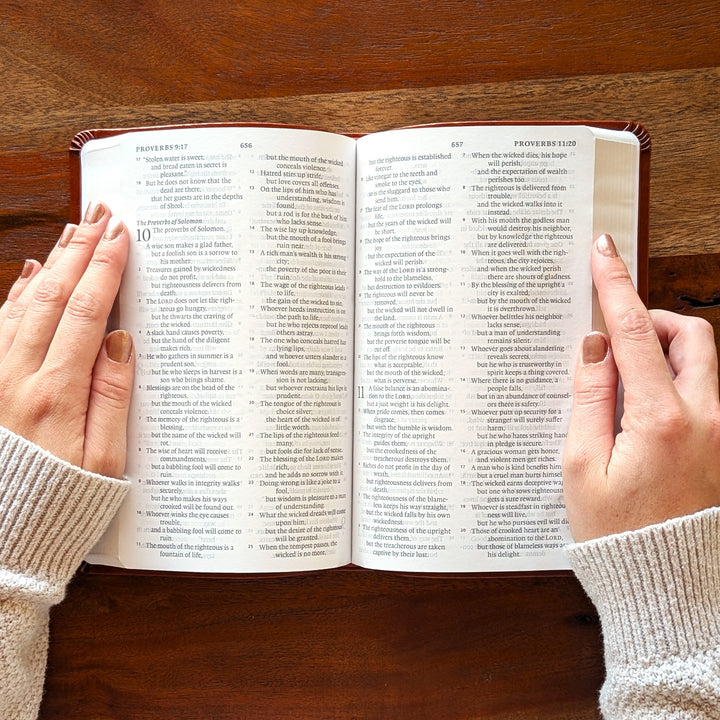 PROVERBS 9:17
656
17 "Stolen water is sweet,
and bread eaten in secret is
pleasant."
18 But he does not know that the
dead are there,
that her guests are in the depths
of Sheol.
The Proverbs of Solomon
10 The proverbs of Solomon.
A wise son makes a glad father,
but a foolish son is a sorrow to
his mother.
2 Treasures gained by wickedness
do not profit,
but righteousness delivers from
death.
3 The LORD does not let the right-
eous go hungry,
but he thwarts the craving of
the wicked.
4 A slack hand causes poverty,
but the hand of the diligent
makes rich.
5 He who gathers in summer is a
prudent son,
but he who sleeps in harvest is a
son who brings shame.
6 Blessings are on the head of the
righteous,
but the mouth of the wicked
conceals violence.
7 The memory of the righteous is a
blessing,
but the name of the wicked will
rot.
8 The wise of heart will receive
commandments,
but a babbling fool will come to
ruin.
9 Whoever walks in integrity walks
securely,
but he who makes his ways
crooked will be found out.
10 Whoever winks the eye causes
trouble,
and a babbling fool will come to
ruin.
11 The mouth of the righteous is a
fountain of life,
but the mouth of the wicked
conceals violence.
12 Hatred stirs up strife,
but love covers all offenses.
13 On the lips of him who has
understanding, wisdom is
found,
but a rod is for the back of him
who lacks sense.
14 The wise lay up knowledge,
but the mouth of a fool brings
ruin near.
15 A rich man's wealth is his strong
city;
the poverty of the poor is their
ruin.
16 The wage of the righteous leads
to life,
the gain of the wicked to sin.
17 Whoever heeds instruction is on
the path to life,
but he who rejects reproof leads
others astray.
18 The one who conceals hatred has
lying lips,
and whoever utters slander is a
fool.
19 When words are many, transgres-
sion is not lacking,
but whoever restrains his lips is
prudent.
20 The tongue of the righteous is
choice silver;
the heart of the wicked is of
little worth.
21 The lips of the righteous feed
many,
but fools die for lack of sense.
22 The blessing of the LORD makes
rich,
and he adds no sorrow with it.
23 Doing wrong is like a joke to a
fool,
but wisdom is pleasure to a man
of understanding.
24 What the wicked dreads will come
upon him,
but the desire of the righteous
will be granted.
25 When the tempest passes, the
wicked is no more,
657
PROVERBS 11:20
but the righteous is established
forever.
Like vinegar to the teeth and
smoke to the eyes,
so is the sluggard to those who
send him.
The fear of the LORD prolongs
life,
but the years of the wicked will
be short.
The hope of the righteous brings
joy,
but the expectation of the
wicked will perish.
The way of the LORD is a strong-
hold to the blameless,
but destruction to evildoers.
The righteous will never be
removed,
but the wicked will not dwell in
the land.
The mouth of the righteous
brings forth wisdom,
but the perverse tongue will be
cut off.
The lips of the righteous know
what is acceptable,
but the mouth of the wicked,
what is perverse.
11 A false balance is an abomina-
tion to the LORD,
but a just weight is his delight.
When pride comes, then comes
disgrace,
but with the humble is wisdom.
The integrity of the upright
guides them,
but the crookedness of the
treacherous destroys them.
Riches do not profit in the day of
wrath,
but righteousness delivers from
death.
The righteousness of the blame-
less keeps his way straight,
but the wicked falls by his own
wickedness.
The righteousness of the upright
delivers them,
but the treacherous are taken
captive by their lust.
7 When the wicked dies, his hope
will perish,
and the expectation of wealth
perishes too.
8 The righteous is delivered from
trouble,
and the wicked walks into it
instead.
9 With his mouth the godless man
would destroy his neighbor,
but by knowledge the righteous
are delivered.
10 When it goes well with the right-
eous, the city rejoices,
and when the wicked perish
there are shouts of gladness.
11 By the blessing of the upright a
city is exalted,
but by the mouth of the wicked
it is overthrown.
12 Whoever belittles his neighbor
lacks sense,
but a man of understanding
remains silent.
13 Whoever goes about slandering
reveals secrets,
but he who is trustworthy in
spirit keeps a thing covered.
14 Where there is no guidance, a
people falls,
but in an abundance of counsel-
ors there is safety.
15 Whoever puts up security for a
stranger will surely suffer
harm,
but he who hates striking hands
in pledge is secure.
16 A gracious woman gets honor,
and violent men get riches.
17 A man who is kind benefits himself,
but a cruel man hurts himself.
18 The wicked earns deceptive wages,
but one who sows righteousness
gets a sure reward.
19 Whoever is steadfast in righteous-
ness will live,
but he who pursues evil will die.
20 Those of crooked heart are an
abomination to the LORD,
but those of blameless ways are
his delight.